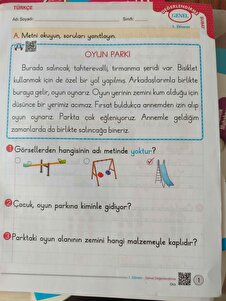 TÜRKÇE
Adı Soyadı:
Sınıfı:
DEĞERLENDİRME
GENEL
1. Dönem
A. Metni okuyun, soruları yanıtlayın.
OYUN PARKI
Burada salıncak, tahterevalli, tırmanma şeridi var. Bisiklet
kullanmak için de özel bir yol yapılmış. Arkadaşlarımla birlikte
buraya gelir, oyun oynarız. Oyun yerinin zemini kum olduğu için
düşünce bir yerimiz acımaz. Fırsat buldukca annemden izin alıp
oyun oynarız. Parkta çok eğleniyoruz. Annemle geldiğim
zamanlarda da birlikte salıncağa bineriz.
1 Görsellerden hangisinin adı metinde yoktur?
2 Çocuk, oyun parkına kiminle gidiyor?
3 Parktaki oyun alanının zemini hangi malzemeyle kaplıdır?
1